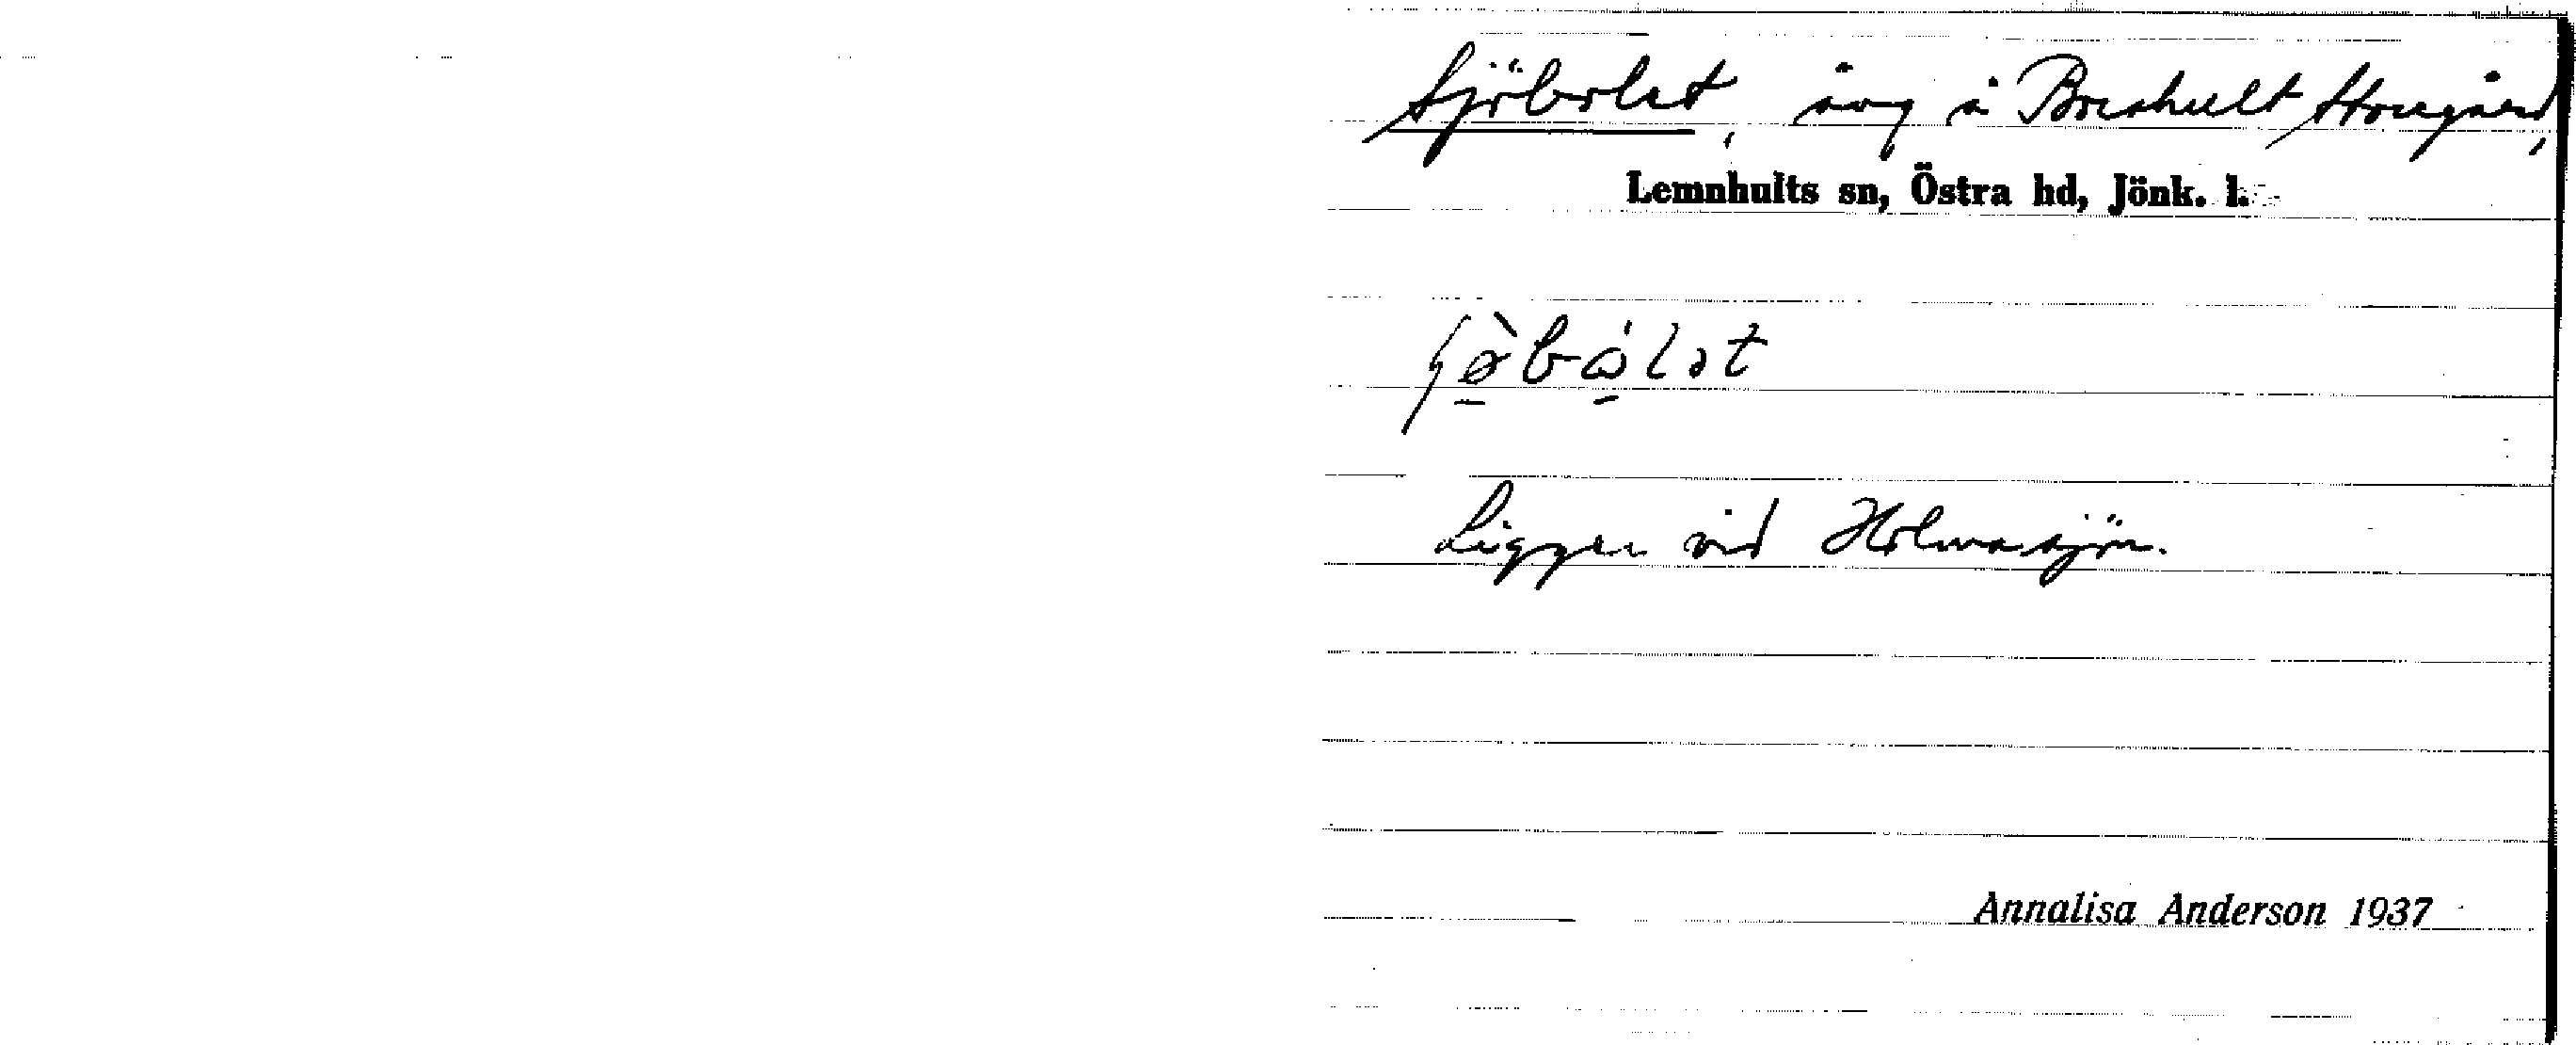 Sjöbolet, äng å Boeshult Storegård,
Lemnhults sn, Östra hd, Jönk. l.
Ligger vid Holmasjön.
Annalisa Anderson 1937